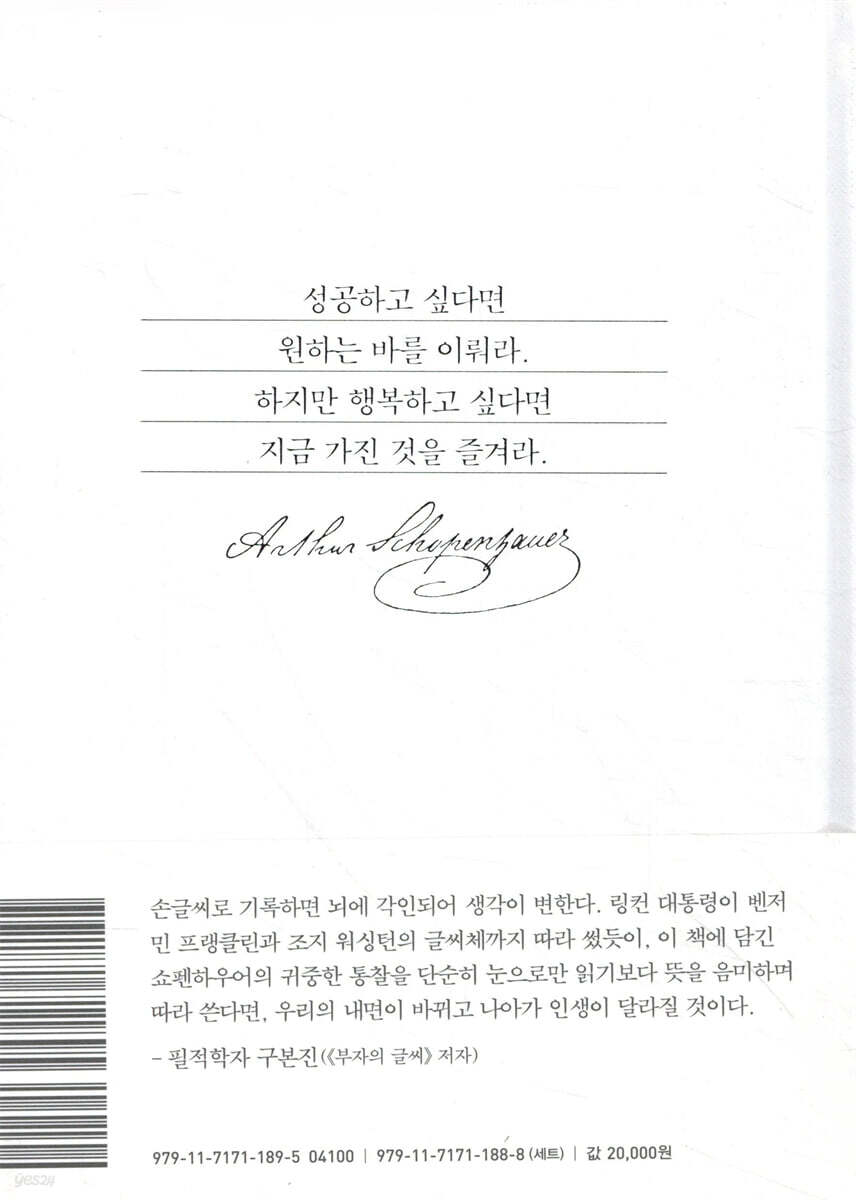 성공하고 싶다면
원하는 바를 이뤄라.
하지만 행복하고 싶다면
지금 가진 것을 즐겨라.
Arthur Schopenhauer
손글씨로 기록하면 뇌에 각인되어 생각이 변한다. 링컨 대통령이 벤저
민 프랭클린과 조지 워싱턴의 글씨체까지 따라 썼듯이, 이 책에 담긴
쇼펜하우어의 귀중한 통찰을 단순히 눈으로만 읽기보다 뜻을 음미하며
따라 쓴다면, 우리의 내면이 바뀌고 나아가 인생이 달라질 것이다.
– 필적학자 구본진(《부자의 글씨》 저자)
979-11-7171-189-5 04100 | 979-11-7171-188-8 (세트) | 값 20,000원
yes24